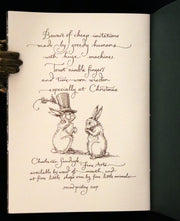 Beware of cheap imitations
made by greedy humans
with huge machines.
Trust nimble fingers
and time-worn wisdom
especially at Christmas
Fine Arts
available by word of mouth, and
at fine little shops run by fine little animals